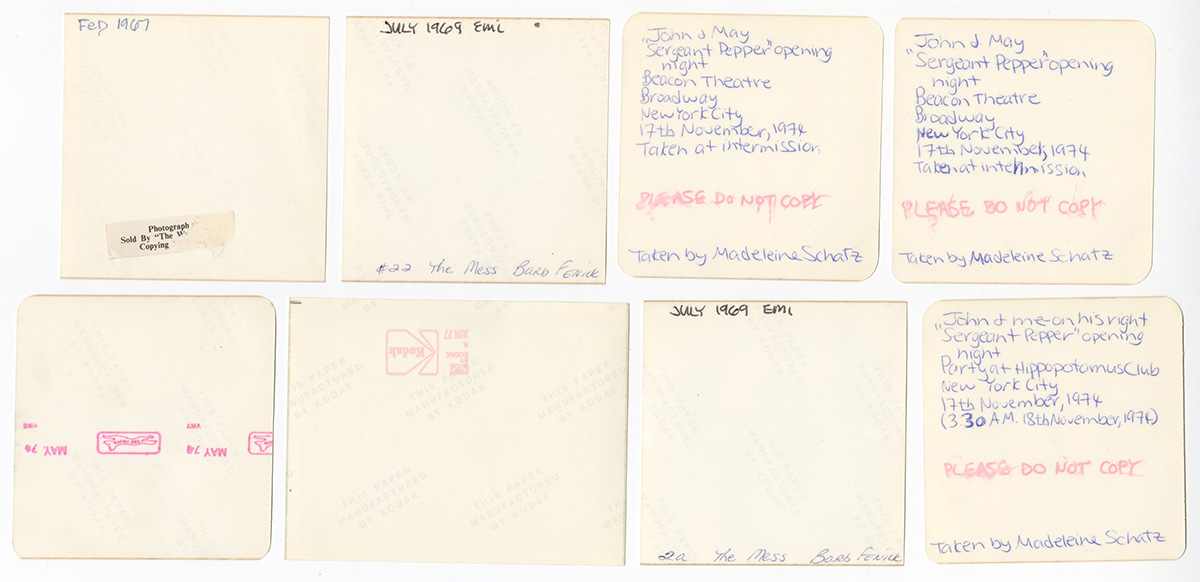 Feb 1967
Photograph
Sold By "The W
Copying
JULY 1969 EMI
#22 The Mess Barb Fenick
"John & May
Sergeant Pepper" opening
night
Beacon Theatre
Broadway
New York City
17th November, 1974
Taken at intermission
PLEASE DO NOT COPY
Taken by Madeleine Schatz
John & May
"Sergeant Pepper" opening
night
Beacon Theatre
Broadway
New York City
17th November, 1974
Taken at intermission
PLEASE DO NOT COPY
Taken by Madeleine Schatz
THIS PAPER
MANUFACTURED
BY KODAK
VNY
MAY 74
MAY 74
THIS PAPER
MANUFACTURED
BY KODAK
Kodak
JUN 77
THIS PAPER
MANUFACTURED
BY KODAK
THIS PAPER
MANUFACTURED
BY KODAK
JULY 1969 EMI
2a The Mess Barb Fenick
"John & me-on his right
Sergeant Pepper" opening
night
Party at Hippopotamus Club
New York City
17th November, 1974
(3.30 A.M. 18th November, 1974)
PLEASE DO NOT COPY
Taken by Madeleine Schatz